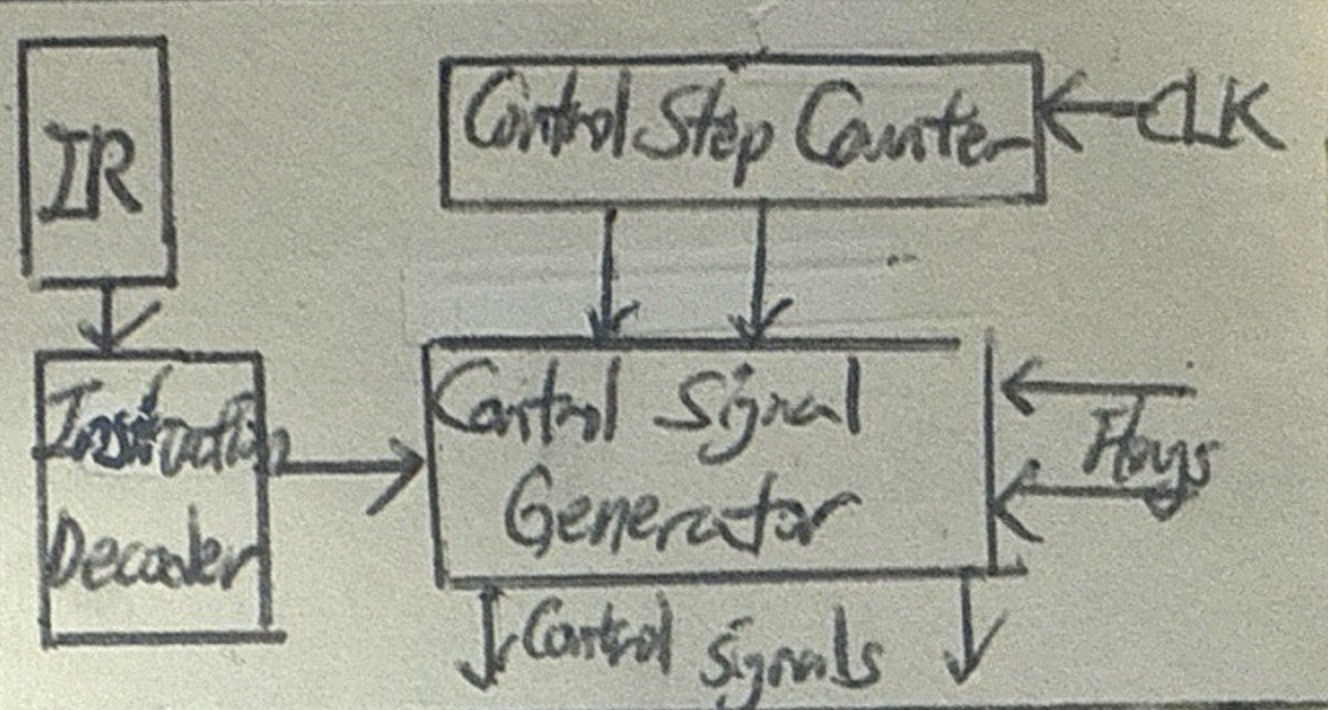 IR
Control Step Counter
CLK
Instruction
Decoder
Control Signal
Generator
Flags
Control Signals